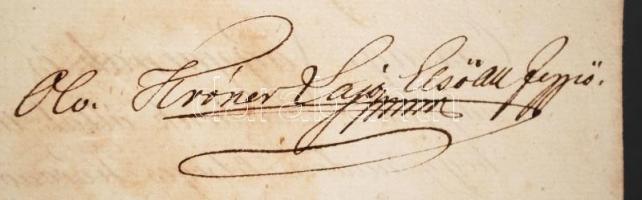 Olv. Króner Lajos Első All jegyző.